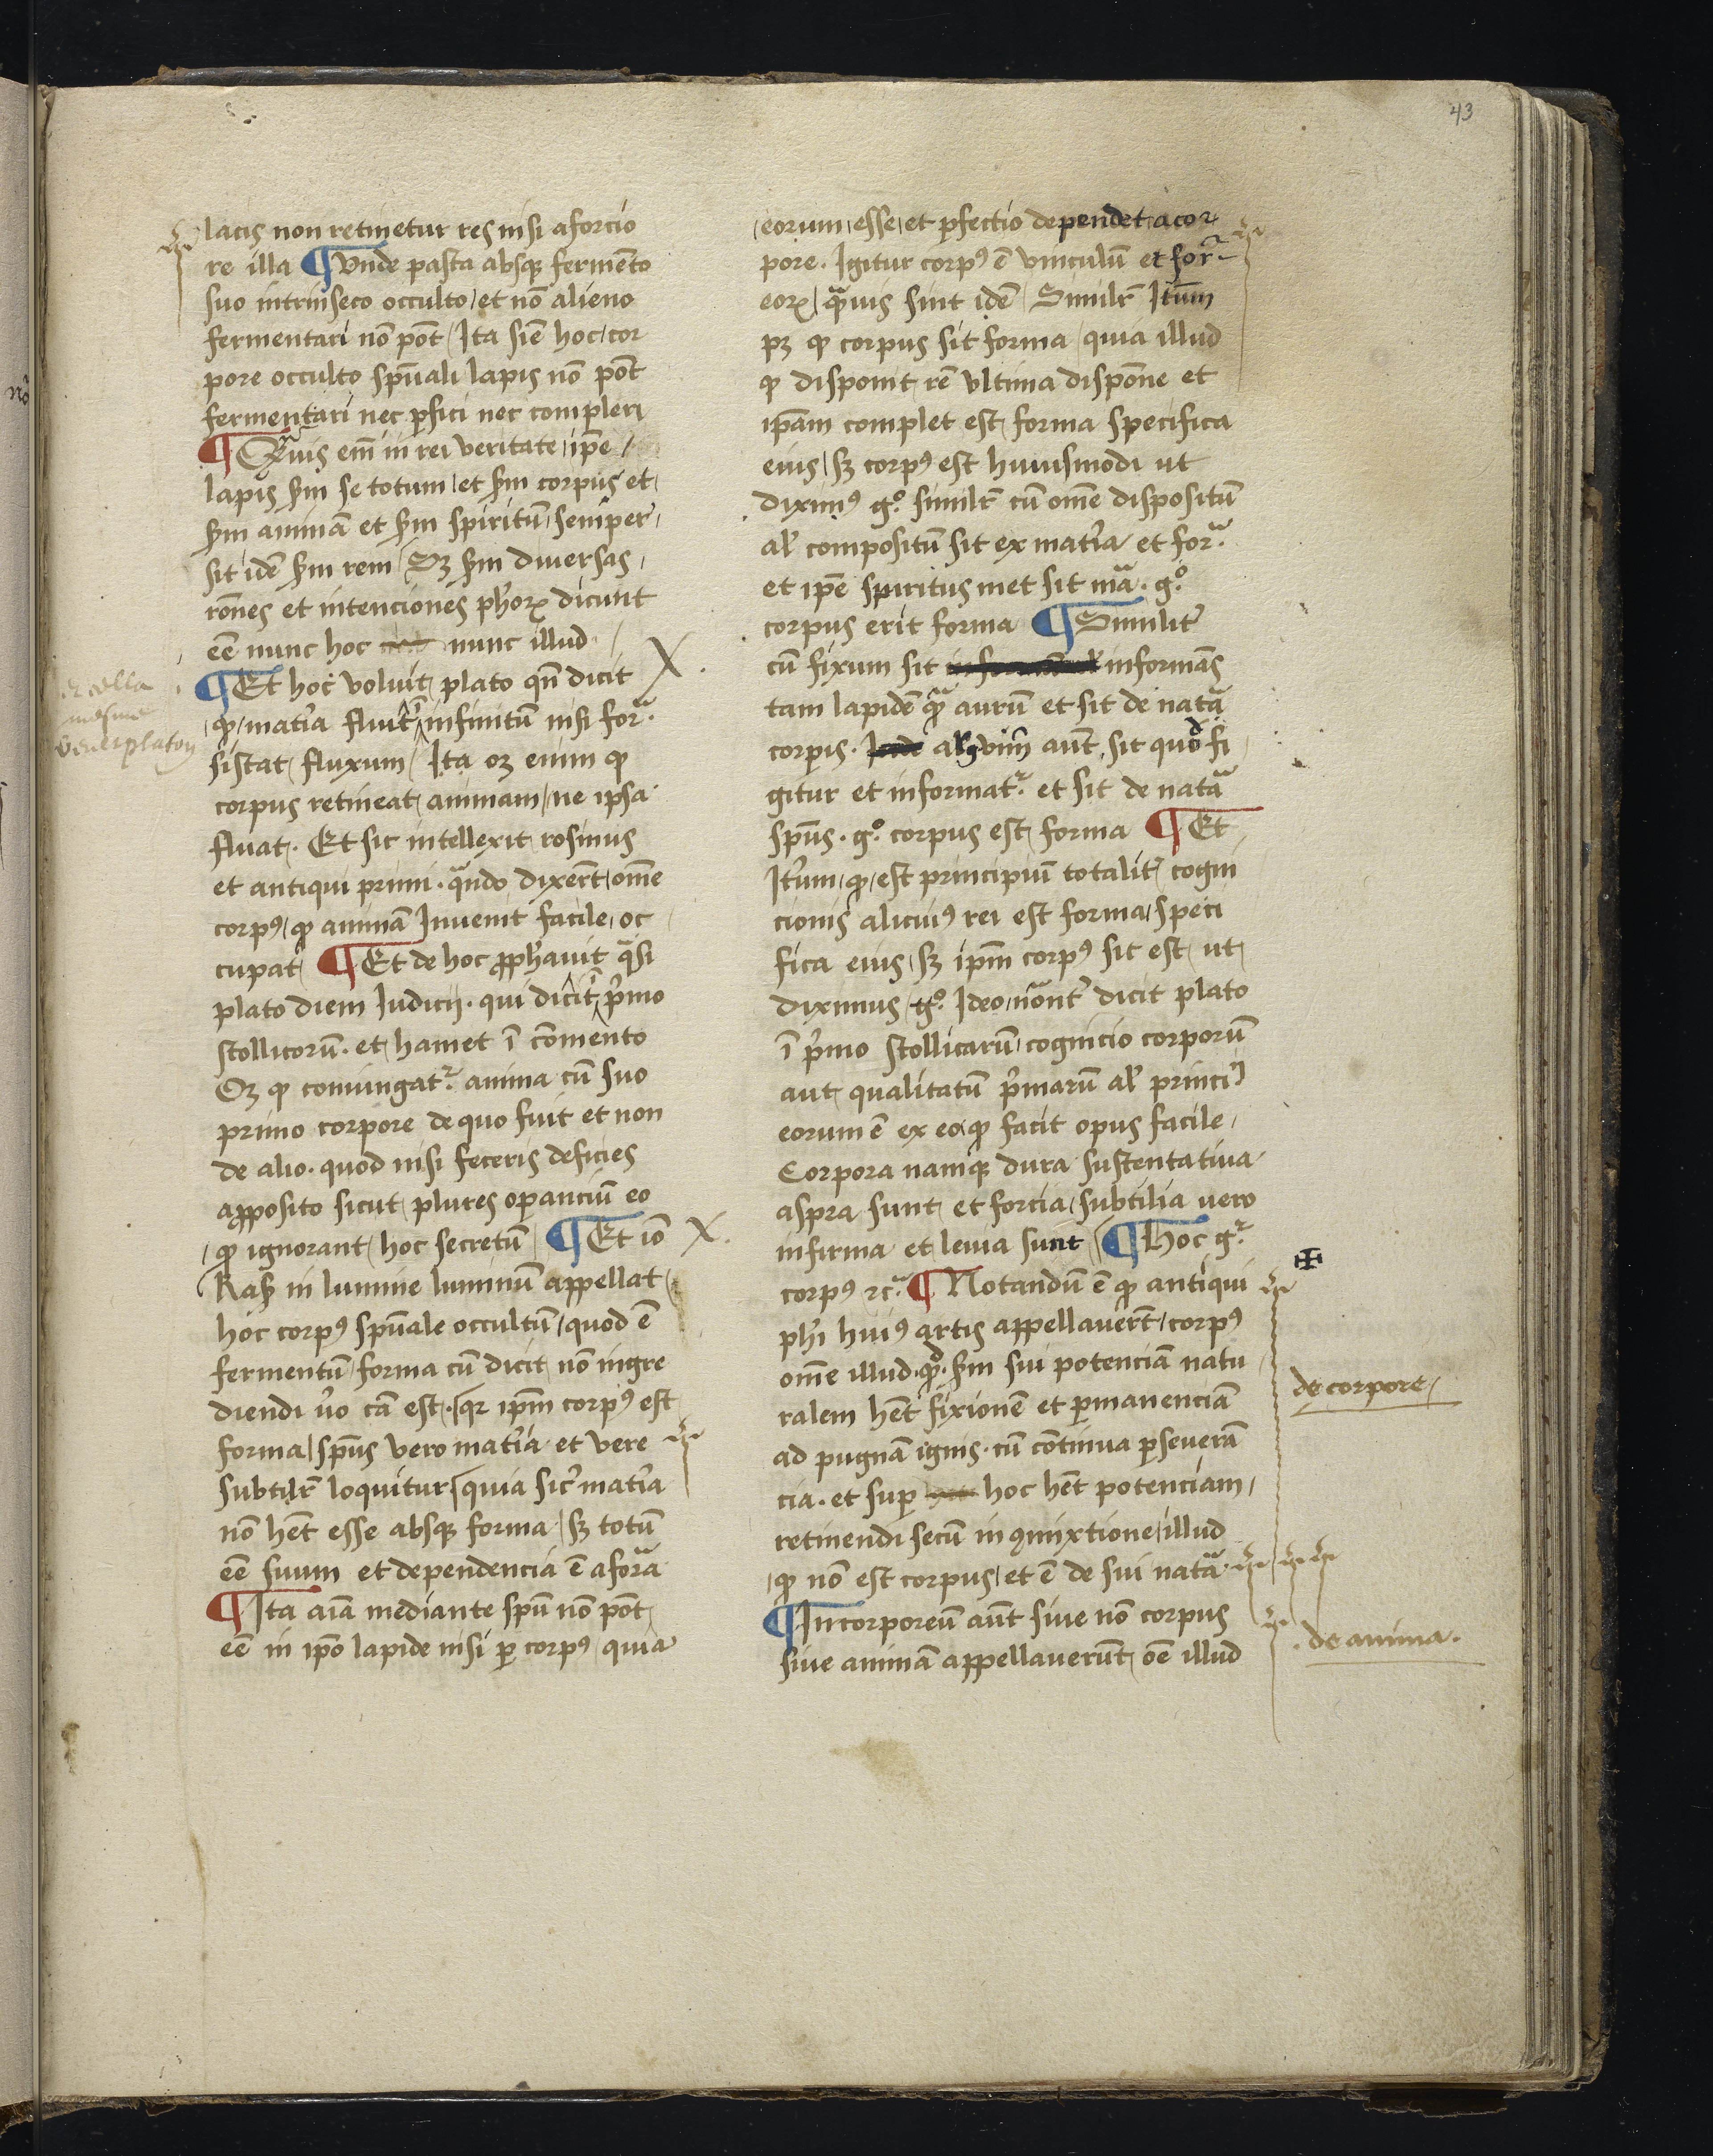 43
lacis non retinetur res nisi a forcio
re illa ¶ Vnde pasta absqꝫ fermēto
suo intrinseco occulto / et nō alieno
fermentari nō pōt / Ita siē hoc / cor
pore occulto spūali lapis nō pōt
fermentari nec ꝑfici nec compleri
¶ Qᵃuis em̄ in rei veritate / ipē /
lapis ẜm se totum / et ẜm corpus et /
ẜm animā et ẜm spiritū / semper /
sit idē ẜm rem / Sꝫ ẜm diuersas /
rōnes et intenciones ph̄oꝝ dicunt
eē nunc hoc nunc illud /
¶ Et hoc voluit plato qn̄ dicit
ꝙ / mat̄ia fluit ī infinitū nisi forᵃ.
sistat fluxum / Ita oꝫ enim ꝙ
corpus retineat animam / ne ipsa
fluat. Et sic intellexit rosinus
et antiqui primi. qᵃndo dixer̄t / om̄e
corpꝰ / ꝙ animā Inuenit facile / oc
cupat / ¶ Et de hoc ꝓph̄auit qᵃsi
plato diem Iudicij. qui dicit ī pͥmo
stollicorū. et hamet ī cōmento
Oꝫ ꝙ coniungatᷣ. anima cū suo
primo corpore de quo fuit et non
de alio. quod nisi feceris deficies
a ꝓposito sicut plures oꝑanciū eo
ꝙ ignorant hoc secretū / ¶ Et iō
Rasis in lumine luminū appellat /
hoc corpꝰ spūale occultū / quod ē
fermentū / forma cū dicit nō ingre
diendi v̓o cā est. / qꝛ ip̄m corpꝰ est
forma / spūs vero mat̄ia et vere
subtilr̄ loquitur / quia sic̄ mat̄ia
nō hēt esse absqꝫ forma / sꝫ totū
eē suum et dependencia ē a forᵃ
¶ Ita aīa mediante spū nō pōt
eē in ip̄o lapide nisi ꝑ corpꝰ quia
eorum / esse / et ꝑfectio dependet a cor
pore. Igitur corpꝰ ē vinculū et forᵃ
eoꝝ / qᵃuis sint idē / Similr̄ Itūm
pꝫ ꝙ corpus sit forma / quia illud
ꝙ disponit rē vltima dispōne et
ip̄am complet est forma specifica
eius / sꝫ corpꝰ est huiusmodi ut
diximꝰ gͦ. similr̄ cū om̄e dispositū
al̓ compositū sit ex mat̄ia et forᵃ.
et ipē spiritus met sit mᵃ. gͦ.
corpus erit forma ¶ Similit̓
cū fixum sit informās
tam lapidē qᵃ aurū et sit de natᵃ
corpis. argvim̄ aūt sit quod fi
gitur et informatᷣ. et sit de natᵃ
spūs. gͦ. corpus est forma ¶ Et
It̓um / ꝙ / est principiū totalit̓ cogni
cionis alicuiꝰ rei est forma / speci
fica eius / sꝫ ip̄m corpꝰ sic est ut
diximus / gͦ. Ideo / nōant̓ dicit plato
ī pͥmo stollicarū / cognicio corporū
aut qualitatū pͥmarū al̓ princi
eorum ē ex eo ꝙ facit opus facile /
Corpora namqꝫ dura sustentatiua
aspra sunt et forcia / subtilia uero
infirma et leuia sunt / ¶ Hoc gᷣ
corpꝰ ⁊cᵃ. ¶ Notandū ē ꝙ antiqui
ph̄i huiꝰ artis appellauer̄t / corpꝰ
om̄e illud. ꝙ. ẜm sui potenciā natu
ralem hēt fixionē et ꝑmanenciā
ad pugnā ignis. cū cōtinua ꝑseuerā
cia. et suꝑ hoc hēt potenciam /
retinendi secū in ꝯmixtione / illud
ꝙ nō est corpus / et ē de sui natᵃ.
¶ Incorporeū aūt siue nō corpus
siue animā appellauerūt oē illud
de corpore /
. de anima .